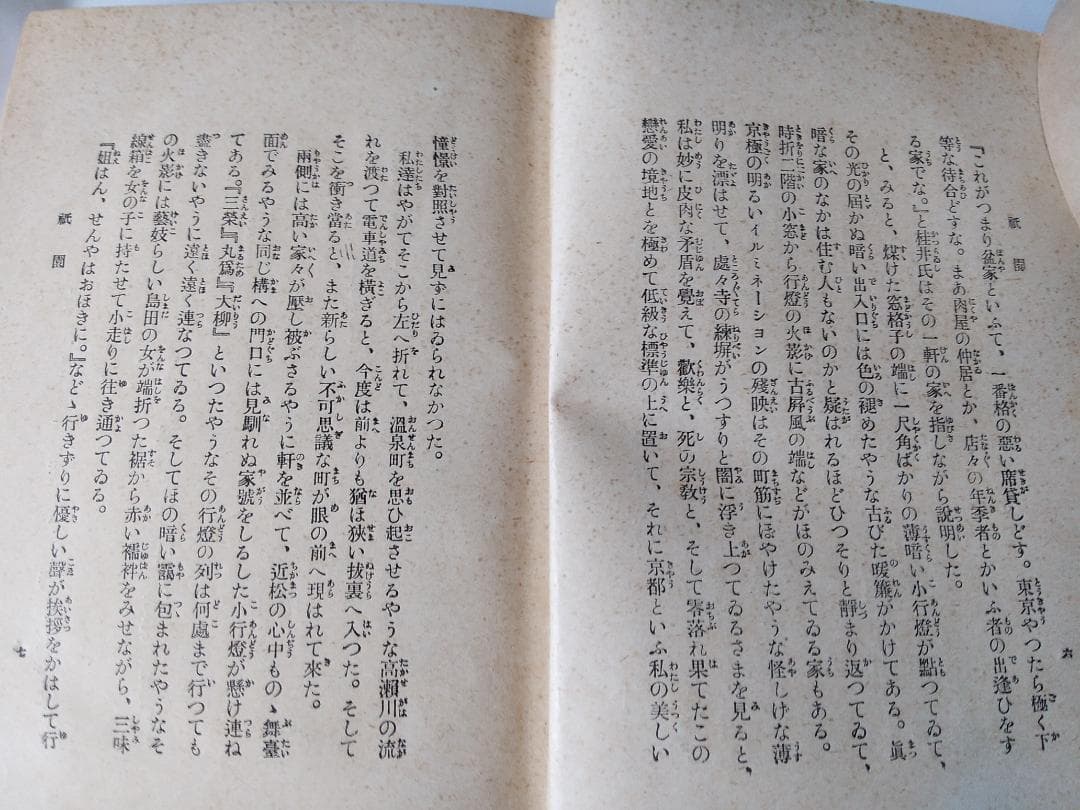 祇園
『これがつまり盆家といふて、一番格の惡い席貸しどす。東京やつたら極く下
等な待合どすな。まあ肉屋の仲居とか、店々の年季者とかいふ者の出逢ひをす
る家でな。』と桂井氏はその一軒の家を指しながら說明した。
と、みると、煤けた窓格子の端に一尺角ばかりの薄暗い小行燈が點つてゐて、
その光の屆かぬ暗い出入口には色の褪めたやうな古びた暖簾がかけてある。眞
暗な家のなかは住む人もないのかと疑はれるほどひつそりと靜まり返つてゐて、
時折二階の小窓から行燈の火影に古屏風の端などがほのみえてゐる家もある。
京極の明るいイルミネーションの殘映はその町筋にぼやけたやうな怪しげな薄
明りを漂はせて、處々寺の練塀がうつすりと闇に浮き上つてゐるさまを見ると、
私は妙に皮肉な矛盾を覺えて、歡樂と、死の宗敎と、そして零落れ果てたこの
戀愛の境地とを極めて低級な標準の上に置いて、それに京都といふ私の美しい
六
憧憬を對照させて見ずにはゐられなかつた。
私達はやがてそこから左へ折れて、溫泉町を思ひ起させるやうな高瀨川の流
れを渡つて電車道を橫ぎると、今度は前よりも猶ほ狹い拔裏へ入つた。そして
そこを衝き當ると、また新らしい不可思議な町が眼の前へ現はれて來た。
兩側には高い家々が壓し被ぶさるやうに軒を並べて、近松の心中ものゝ舞臺
面でみるやうな同じ構への門口には見馴れぬ家號をしるした小行燈が懸け連ね
てある。『三榮』『丸爲』『大柳』といつたやうなその行燈の列は何處まで行つても
盡きないやうに遠く遠く連なつてゐる。そしてほの暗い靄に包まれたやうなそ
の火影には藝妓らしい島田の女が端折つた裾から赤い襦袢をみせながら、三味
線箱を女の子に持たせて小走りに往き通つてゐる。
『姐はん、せんやはおほきに。』などゝ行きずりに優しい聲が挨拶をかはして行
祇園
七